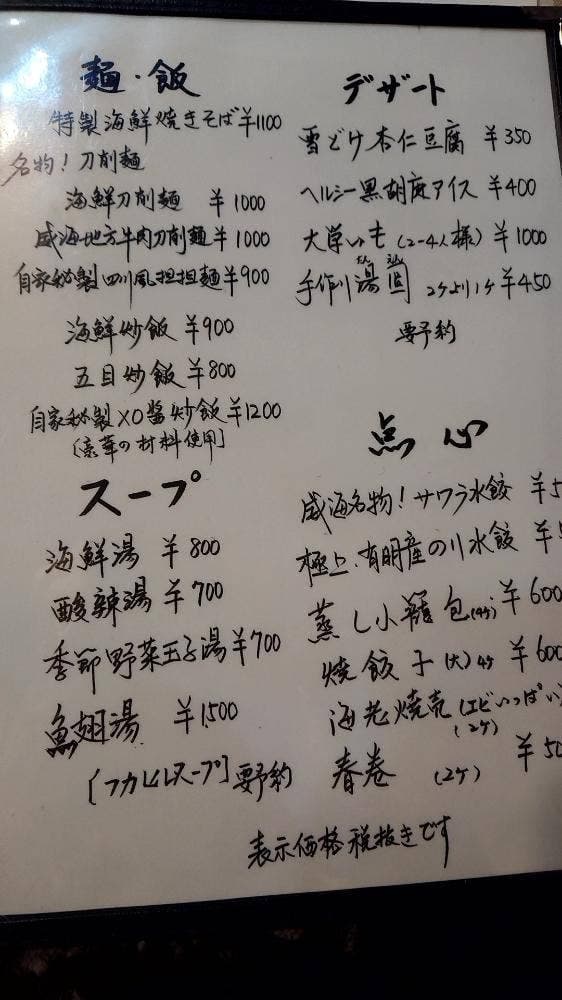 麺・飯
特製海鮮焼きそば ¥1100
名物！刀削麺
海鮮刀削麺 ¥1000
威海地方牛肉刀削麺 ¥1000
自家秘製四川風担担麺 ¥900
海鮮炒飯 ¥900
五目炒飯 ¥800
自家秘製XO醬炒飯 ¥1200
[豪華の材料使用]
スープ
海鮮湯 ¥800
酸辣湯 ¥700
季節野菜玉子湯 ¥700
魚翅湯 ¥1,500
[フカヒレスープ]要予約
デザート
雪どけ杏仁豆腐 ¥350
ヘルシー黒胡麻アイス ¥400
大学いも (2-4人様) ¥1000
手作り湯圓 2ケより1ケ ¥450
要予約
点心
威海名物！サワラ水餃 ¥5
極上.有明産のり水餃 ¥
蒸し小籠包(4ケ) ¥600
焼餃子(大)4ケ ¥600
海老焼売(エビいっぱい)
(2ケ)
春巻 (2ケ) ¥50
表示価格税抜きです